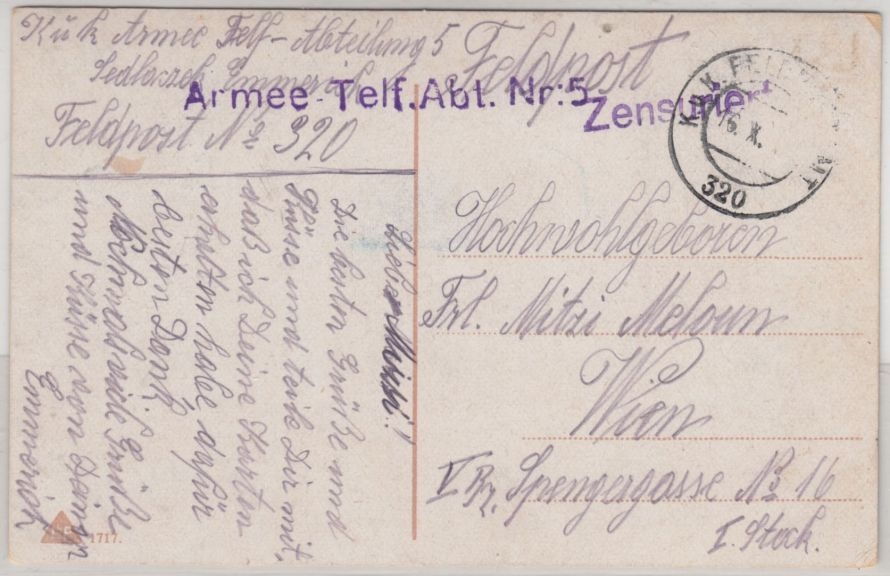 K u k Armee Telf-Abteilung 5
Sedlaczek Emmerich
Feldpost No 320
Armee-Telf.Abt. Nr:5
Feldpost
Zensuriert
K.u.K. FELDPOSTAMT
16. X.
320
Hochwohlgeboren
Frl. Mitzi Meloun
Wien
V Bz. Spengergasse No 16
I. Stock.
Liebe Mitzi!
Die besten Grüße und
Küsse und teile Dir mit,
daß ich Deine Karten
erhalten habe dafür
besten Dank,
Nochmals viele Grüße
und Küsse von Deinen
Emmerich
1717.